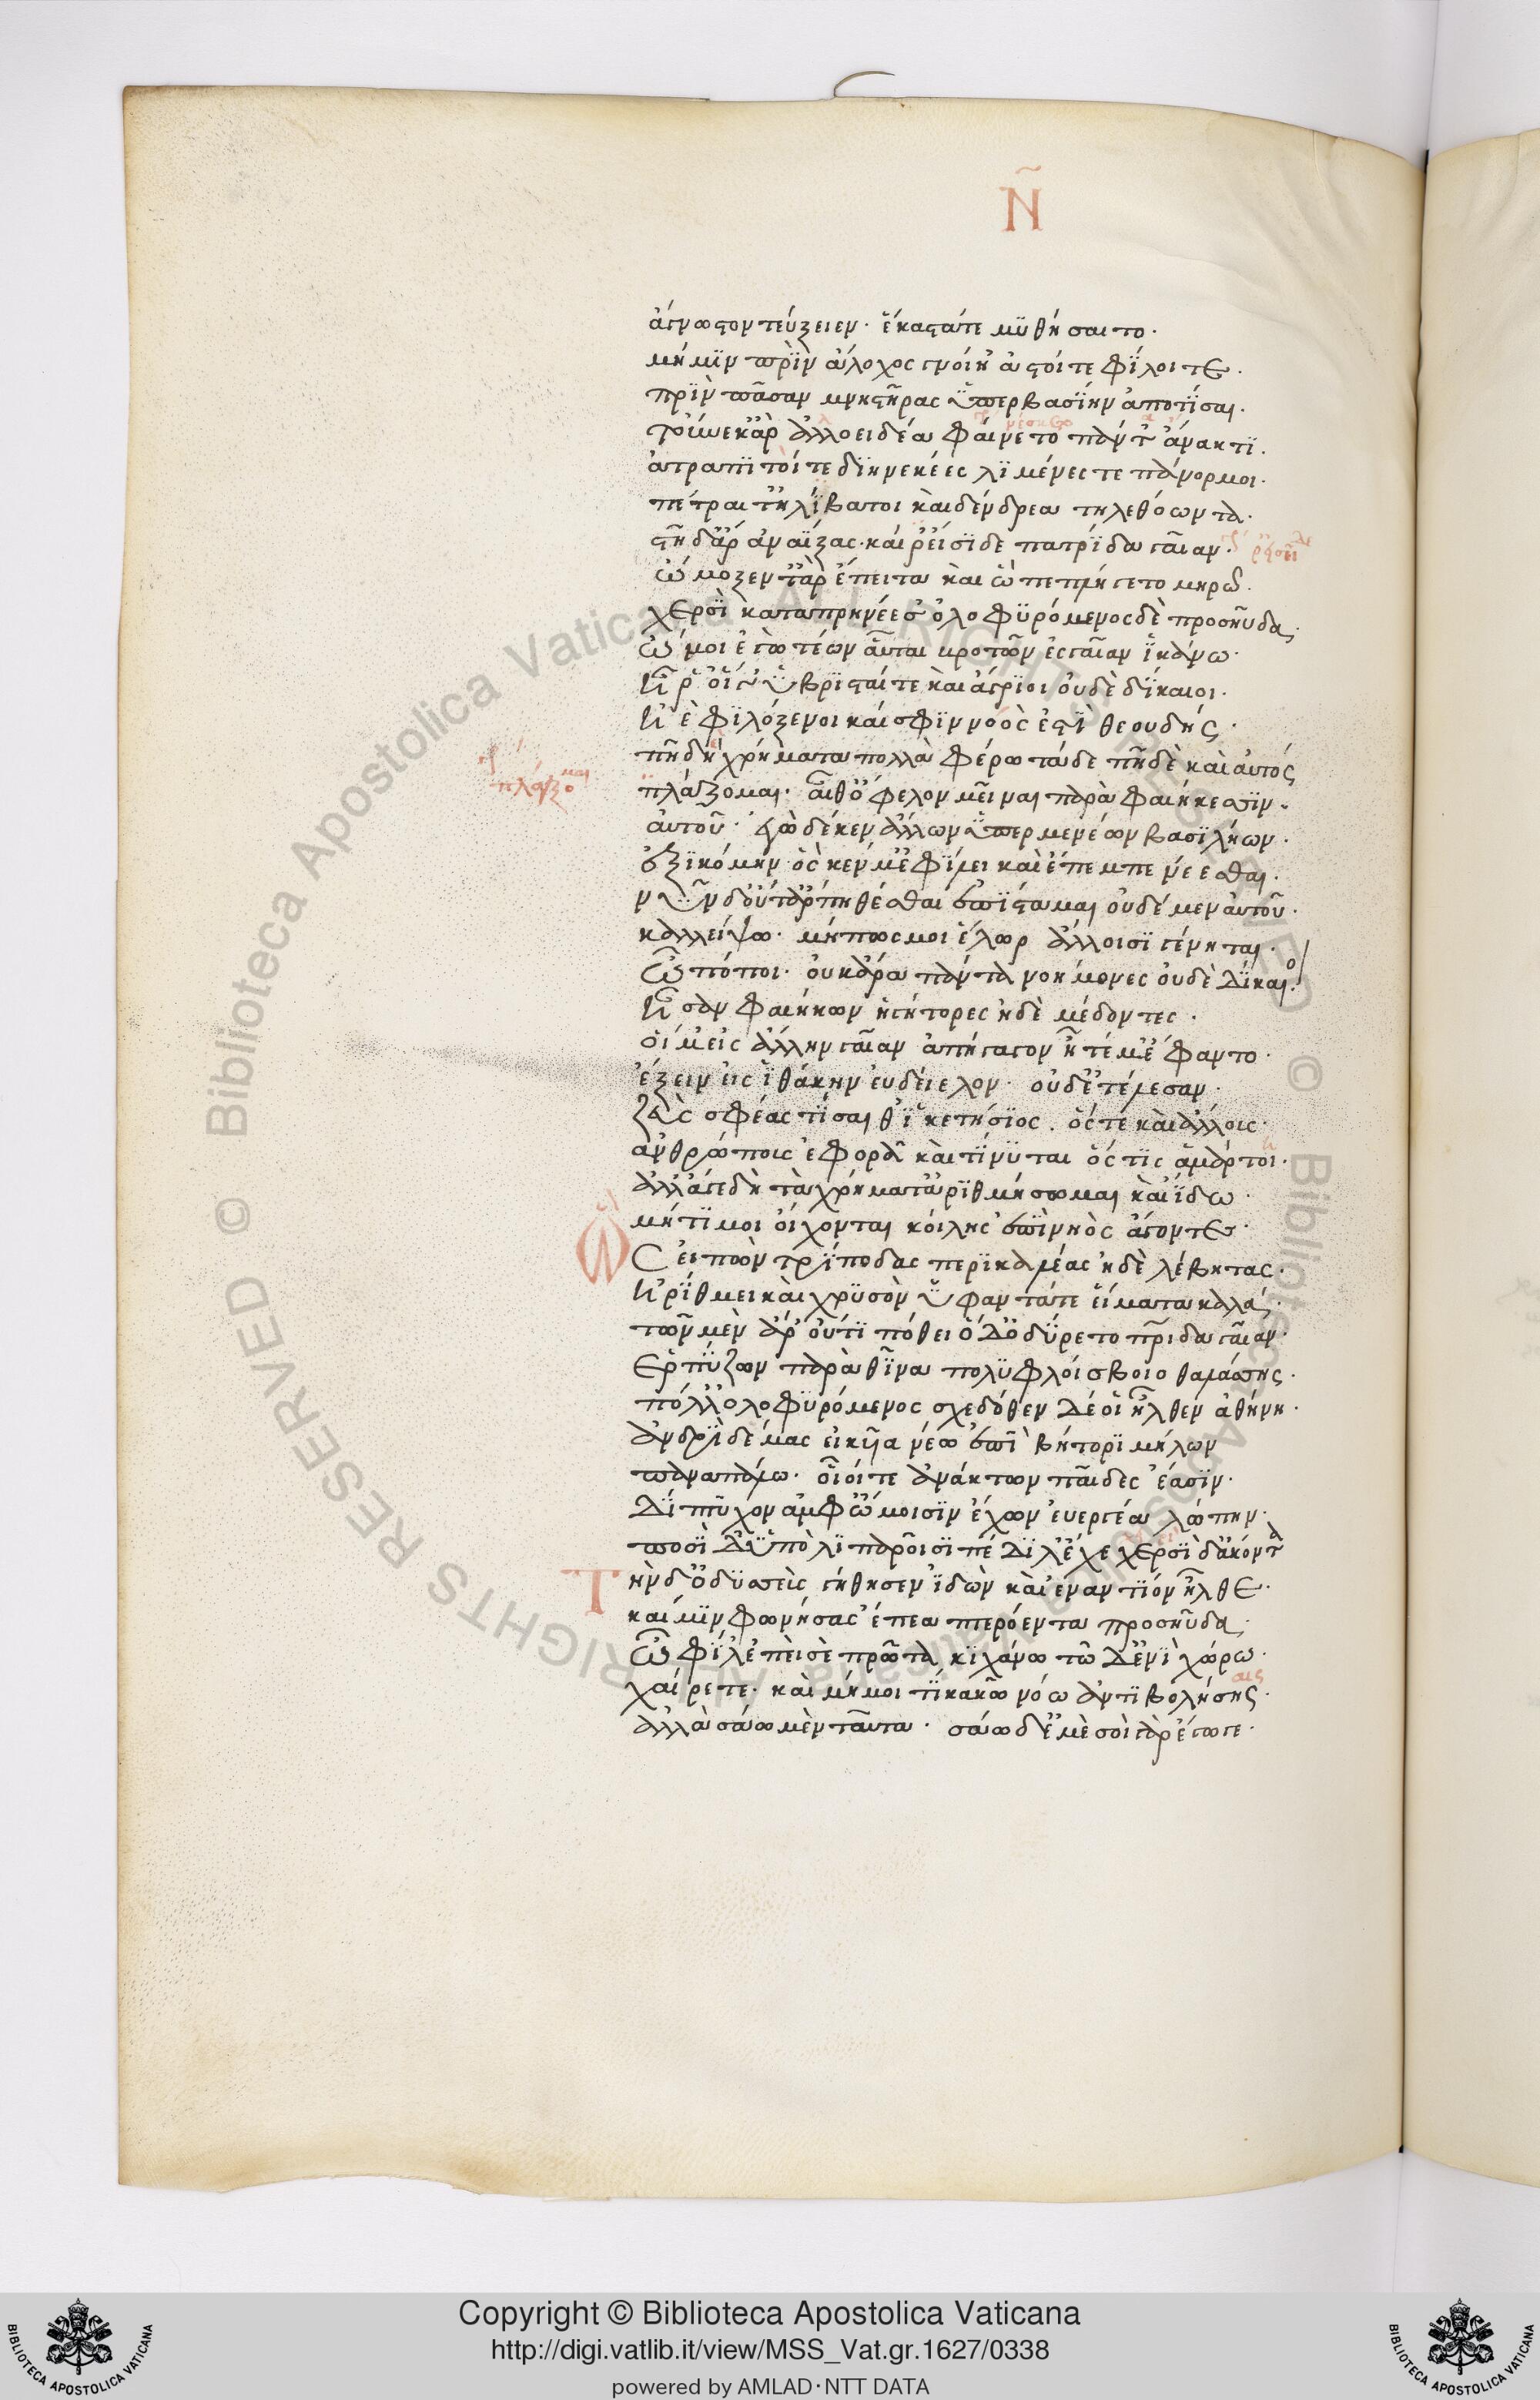 Ν̃
ἄγνωστον τεύξειεν· ἕκαστά τε μϋθήσαιτο·
μή μϊν πρῒν ἄλοχος γνοίη ἀστοί τε φΐλοι τε·
πρῒν πᾶσαν μνηστῆρας ϋ̔περβασΐην ἀποτΐσαι·
τοὔνεκ' ἄρ' ἀλλοειδέα φαίνετο πάντ' ἄνακτϊ·
ἀτραπϊτοί τε δϊηνεκέες λϊμένες τε πάνορμοι·
πέτραι τ' ἠλΐβατοι καὶ δένδρεα τηλεθόωντα·
στῆ δ' ἄρ' ἀναΐξας· καί ῥ' εἴσϊδε πατρΐδα γαῖαν·
ὤμοξεν τ' ἂρ ἔπειτα καὶ ὣ πεπλήγετο μηρώ·
χερσῒ καταπρηνέεσσ' ὀλοφϋρόμενος δὲ προσηῦδα·
ὤ μοι ἐγὼ τέων αὖται βροτῶν ἐς γαῖαν ϊ̔κάνω·
ἦ ῥ' οἵ γ' ϋ̔βρϊσταί τε καὶ ἄγρϊοι οὐδὲ δΐκαιοι·
ἦὲ φϊλόξενοι καί σφϊν νόος ἐστῒ θεουδής·
πῆ δὴ χρήματα πολλὰ φέρω τάδε πῆ δὲ καὶ αὐτός
πλάξομαι· αἴθ' ὄφελον μεῖναι παρὰ φαιήκεσσϊν·
αὐτοῦ· ἐγὼ δέ κεν ἄλλων ϋ̔περμενέων βασϊλήων·
ἐξϊκόμην· ὅς κέν μ' ἐφΐλει καὶ ἔπεμπε νέεσθαι·
νῦν δ' οὔτ' ἄρ πη θέσθαι ἐπΐσταμαι οὐδὲ μὲν αὐτοῦ·
καλλείψω· μήπως μοι ἕλωρ ἄλλοισϊ γένηται·
ὢ πόποι· οὐκ ἄρα πάντα νοήμονες οὐδὲ δΐκαιοι
ἦσαν φαιήκων ἡγήτορες ἠδὲ μέδοντες·
οἵ μ' εἰς ἄλλην γαῖαν ἀπήγαγον ἦ τέ μ' ἔφαντο·
ἔξειν εἰς ϊ̓θάκην εὐδείελον· οὐδ' ἐτέλεσαν·
ζεὺς σφέας τΐσαιθ' ϊ̔κετήσϊος· ὅς τε καὶ ἄλλοις·
ἀνθρώποις ἐφορᾶ καὶ τΐνϋται ὅς τϊς ἁμάρτοι·
ἀλλ' ἄγε δὴ τὰ χρήματ' ἀρϊθμήσωμαι καὶ ΐδω·
μή τϊ μοι οἴχονται κοίλης ἐπῒ νηὸς ἄγοντες·
Ὣς εἰπὼν τρΐποδας περϊκαλλέας ἠδὲ λέβητας·
ἠρΐθμει καὶ χρϋσὸν ϋ̔φαντά τε εἵματα καλά·
τῶν μὲν ἄρ' οὔτϊ πόθει ὁ δ' ὀδΰρετο πρϊδα γαῖαν·
ἑρπΰζων παρὰ θῖνα πολϋφλοίσβοιο θαλάσσης·
πόλλ' ὀλοφϋρόμενος σχεδόθεν δέ οἱ ἦλθεν ἀθήνη·
ἀνδρῒ δέμας εἰκυῖα νέω ἐπῒ βήτορϊ μήλων
παναπάλω· οἷοί τε ἀνάκτων παῖδες ἔασϊν·
δΐπτϋχον ἀμφ' ὤμοισϊν ἔχων εὐεργέα λώπην·
ποσσῒ δ' ϋ̔πὸ λϊπαροῖσϊ πέδϊλ' ἔχε χερσῒ δ' ἄκοντα
Τὴν δ' ὀδϋσσεὺς γήθησεν ϊ̓δὼν καὶ ἐναντΐον ἦλθε·
καί μϊν φωνήσας ἔπεα πτερόεντα προσηῦδα·
ὢ φΐλ' ἐπεὶ σὲ πρῶτα κϊχάνω τῶδ' ἐνῒ χώρω·
χαίρετε· καὶ μή μοι τϊ κακῶ νόω ἀντϊβολήσης·
ἀλλὰ σάω μὲν ταῦτα· σάω δ' ἐμὲ σοὶ γὰρ ἔγωγε·
Copyright © Biblioteca Apostolica Vaticana
http://digi.vatlib.it/view/MSS_Vat.gr.1627/0338
powered by AMLAD·NTT DATA